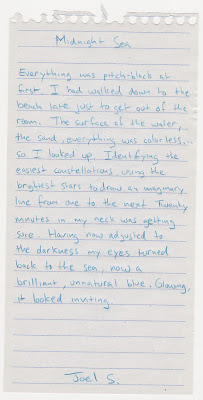 Midnight Sea
Everything was pitch-black at
first. I had walked down to the
beach late just to get out of the
room. The surface of the water,
the sand, everything was colorless...
so I looked up. Identifying the
easiest constellations, using the
brightest stars to draw an imaginary
line from one to the next. Twenty
minutes in my neck was getting
sore. Having now adjusted to
the darkness my eyes turned
back to the sea, now a
brilliant, unnatural blue. Glowing,
it looked inviting.
Joel S.